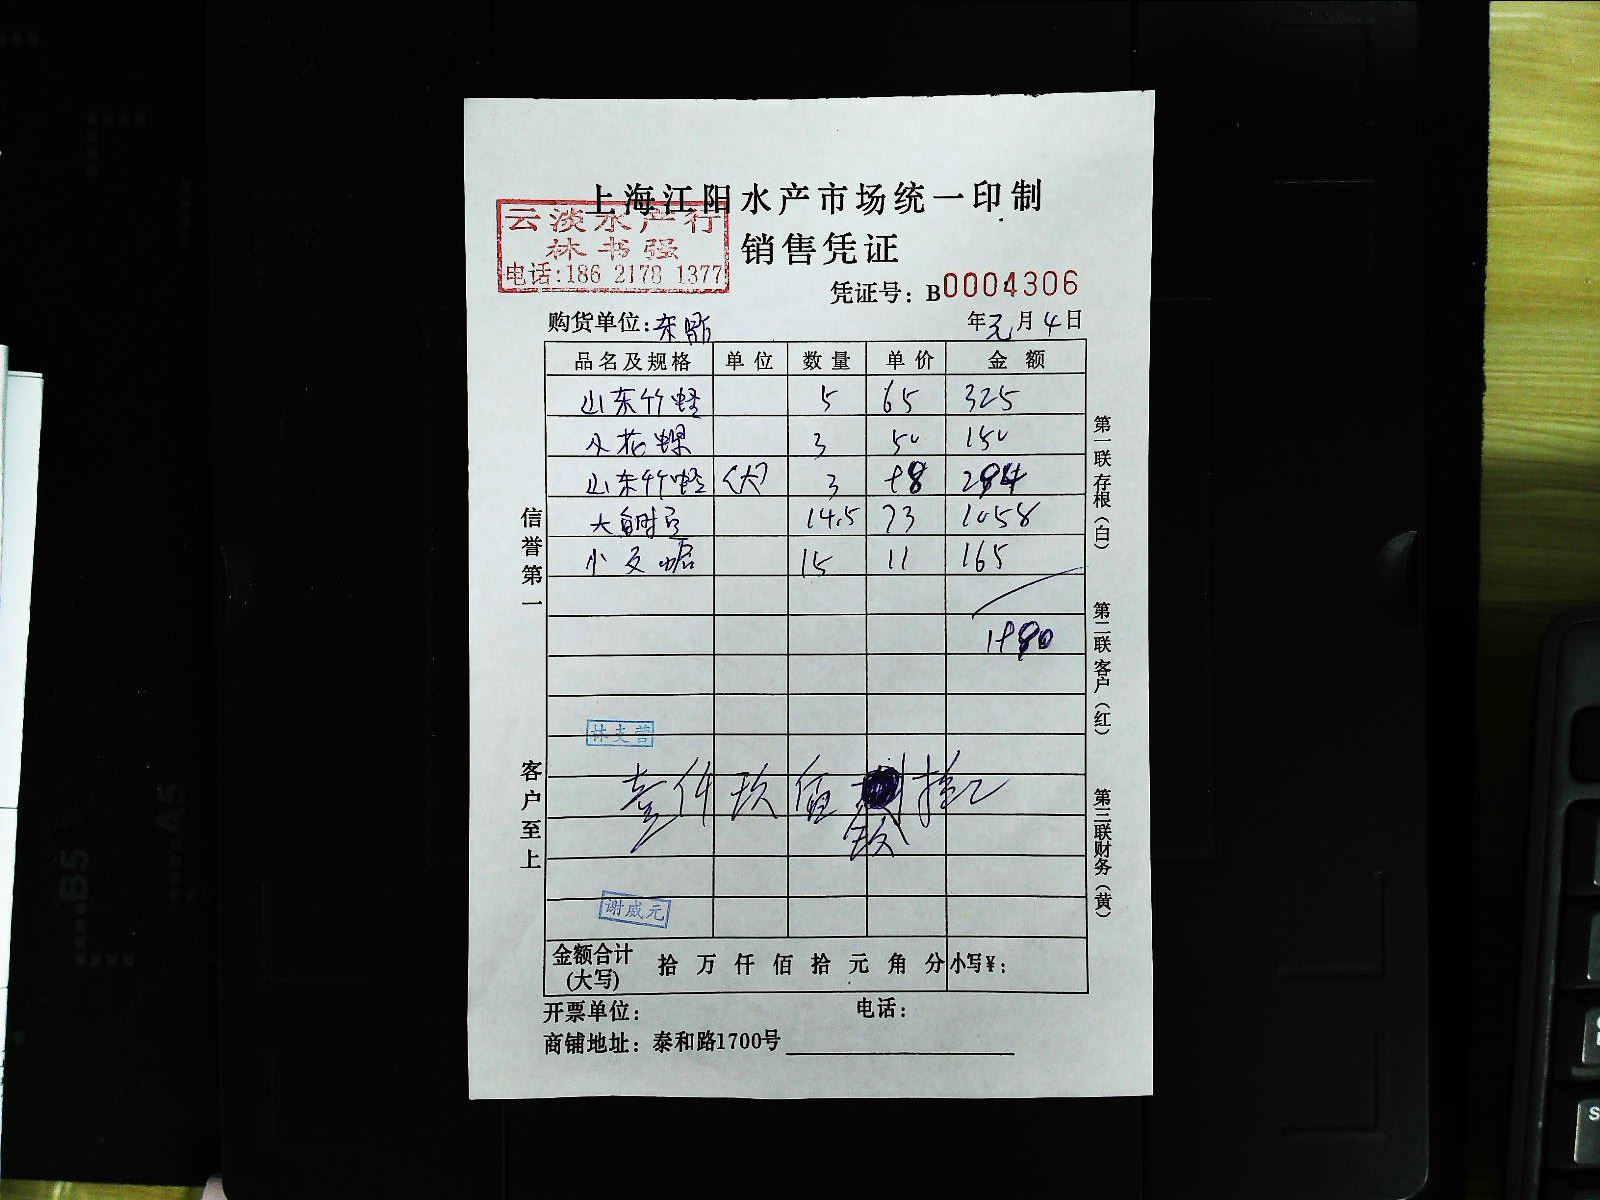 上海江阳水产市场统一印制
云淡水产行
林书强
电话:186 2178 1377
销售凭证
凭证号: B0004306
购货单位:东
年元月4日
品名及规格 单位 数量 单价 金额
山东竹蛏 5 65 325
花螺 3 50 150
山东竹蛏 (大) 3 98 294
大 14.5 73 1058
小 15 11 165
1990
林
壹仟玖佰 玖拾
谢威元
金额合计(大写) 拾 万 仟 佰 拾 元 角 分 小写¥:
开票单位: 电话:
商铺地址: 泰和路1700号
信誉第一
客户至上
第一联存根(白)
第二联客户(红)
第三联财务(黄)
B5
A5